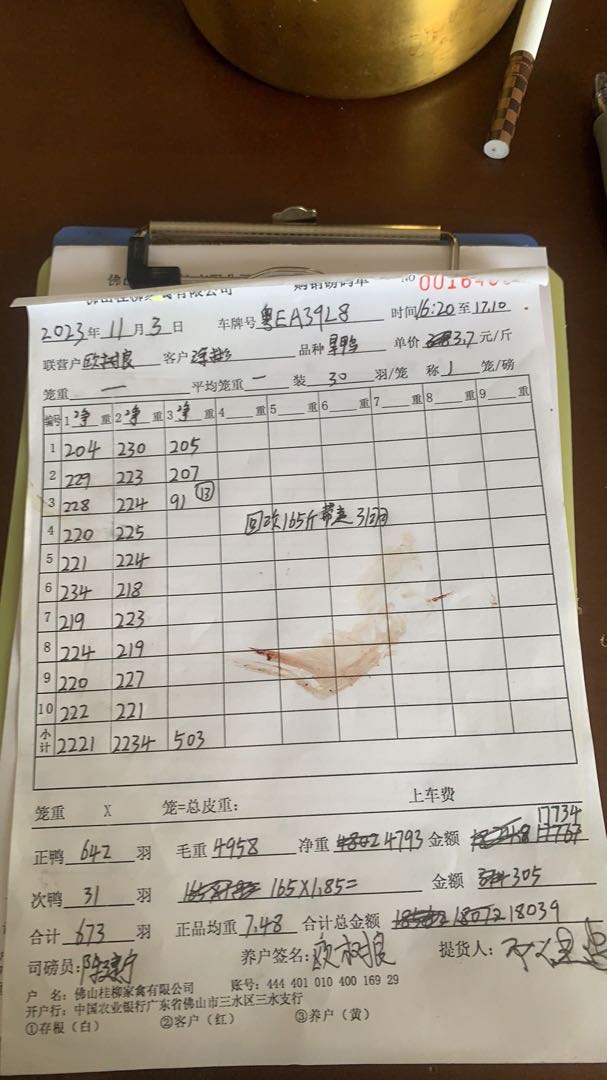 佛山桂柳家禽有限公司 购销磅码单 NO 00164
2023年 11月 3日 车牌号 粤EA39L8 时间 16:20 至 17.10
联营户 客户 品种 单价 3.7 元/斤
笼重 一 平均笼重 一 装 30 羽/笼 称 1 笼/磅
编号 1 净 重 2 净 重 3 净 重 4 重 5 重 6 重 7 重 8 重 9 重
1 204 230 205
2 229 223 207
3 228 224 91 ⑬
4 220 225 回次165斤带走31回
5 221 224
6 234 218
7 219 223
8 224 219
9 220 227
10 222 221
小计 2221 2234 503
笼重 X 笼=总皮重: 上车费
17734
正鸭 642 羽 毛重 4958 净重 4802 4793 金额 17767
次鸭 31 羽 165X1.85= 金额 305
合计 673 羽 正品均重 7.48 合计总金额 18072 18039
司磅员: 养户签名: 提货人:
户 名: 佛山桂柳家禽有限公司 账号: 444 401 010 400 169 29
开户行: 中国农业银行广东省佛山市三水区三水支行
①存根(白) ②客户(红) ③养户(黄)